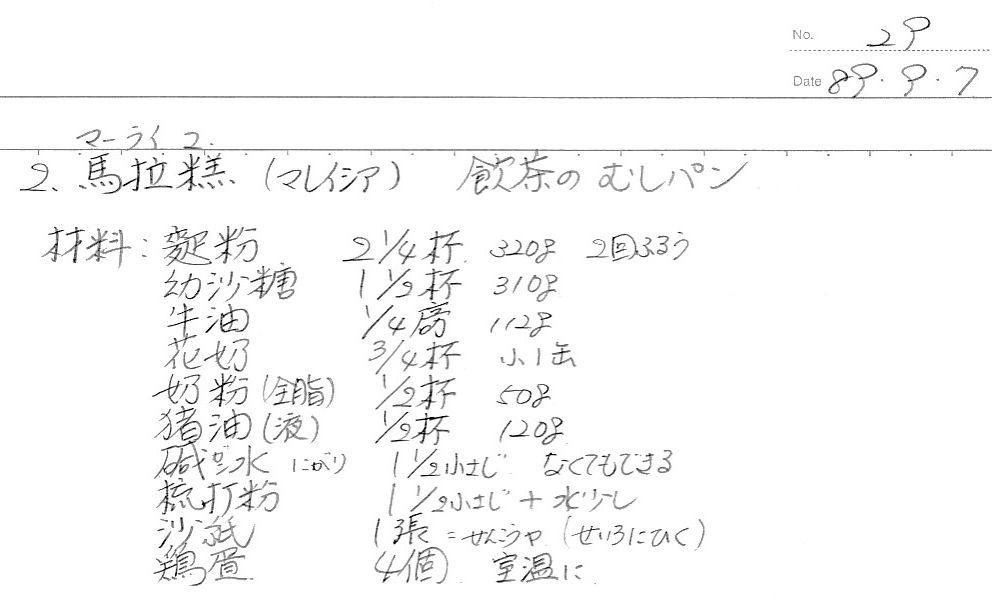 No. 29
Date 89・9・7
マーライコ
2. 馬拉糕 (マレイシア) 飲茶の むしパン
材料: 麺粉 2 1/4杯 320g 2回ふるう
幼沙糖 1 1/2杯 310g
牛油 1/4磅 112g
花奶 3/4杯 小1缶
奶粉(全脂) 1/2杯 50g
猪油(液) 1/2杯 120g
水 にがり 1 1/2小さじ なくてもできる
梳打粉 1 1/2小さじ + 水少し
沙紙 1張 = (せいろにひく)
鶏蛋 4個 室温に